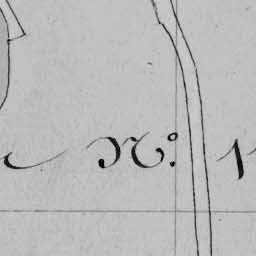 N.º 1